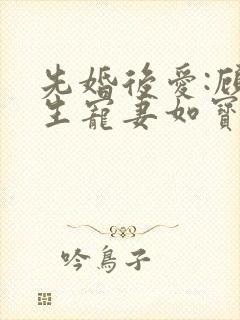 先婚後愛:顧
生寵妻如寶
吟鳥子